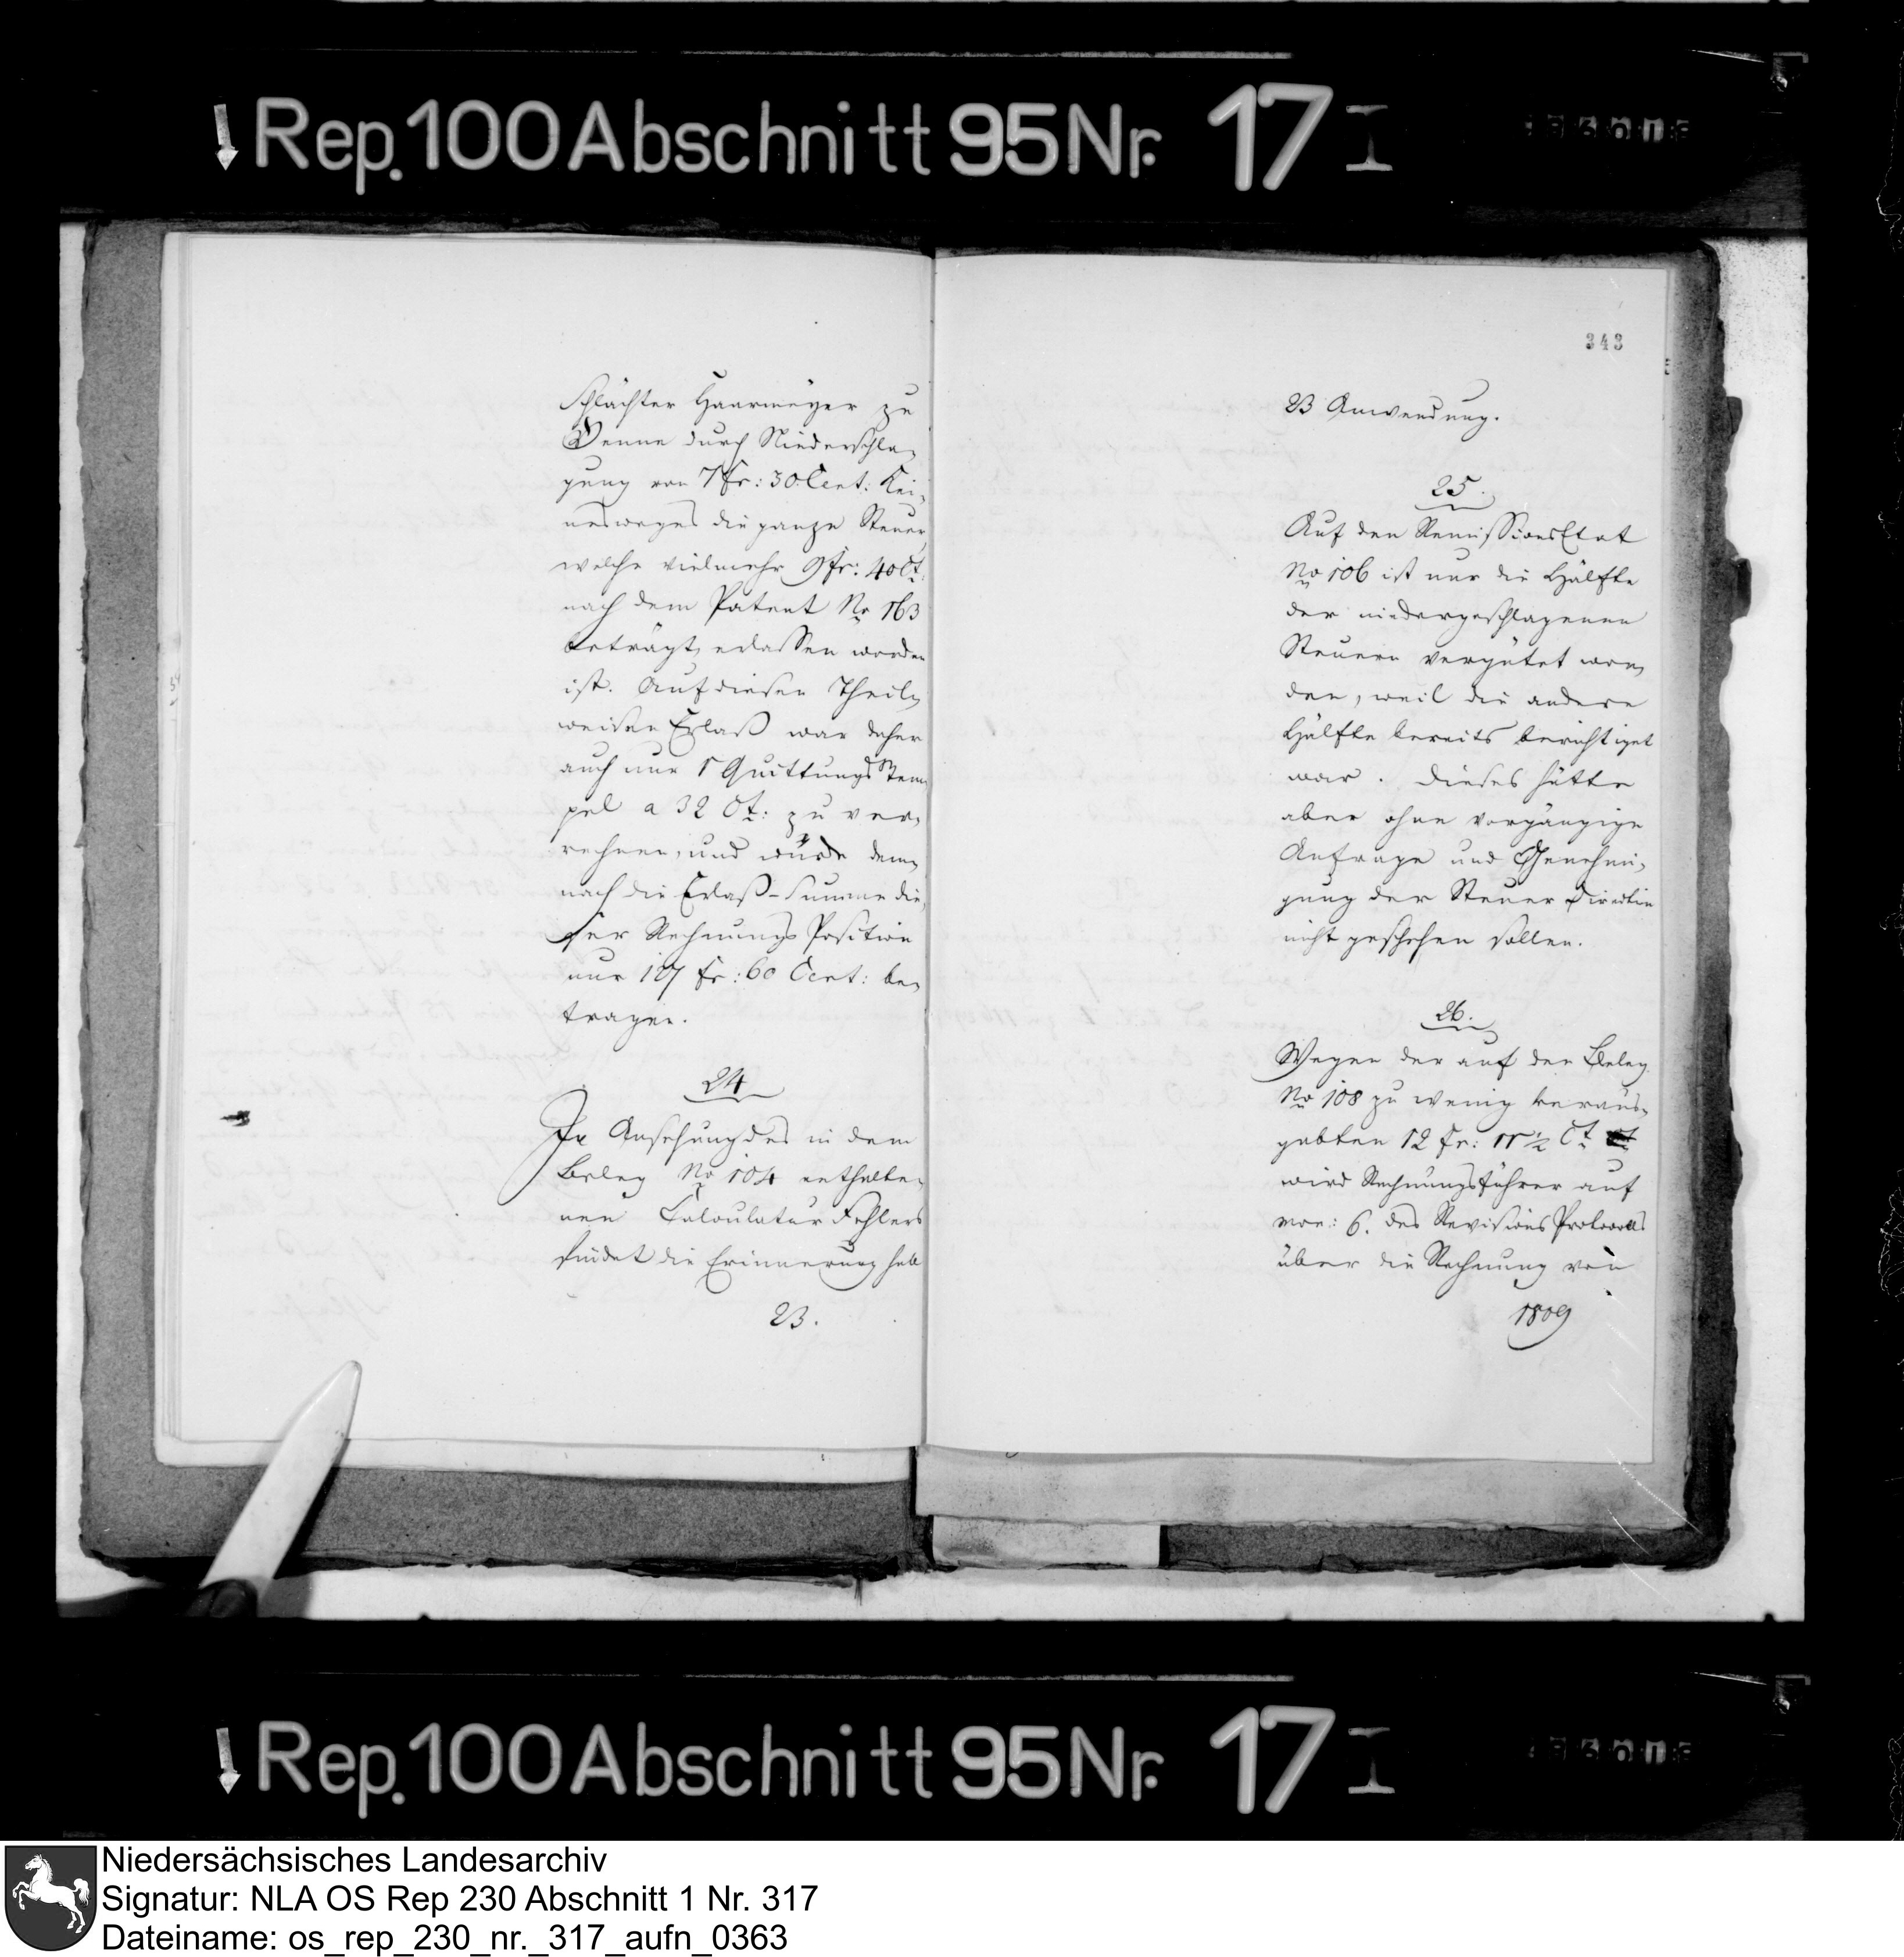 Rep. 100 Abschnitt 95 Nr. 17 I
Schlächter Haarmeyer zu
Venne durch Niederschla-
gung von 7 fr: 30 Cent: kei-
nesweges die ganze Steuer
welche vielmehr 9 fr: 40 Ct.
nach dem Patent No 163
beträgt, erlassen worden
ist. Auf diesen Theil-
weisen Erlaß war daher
auch nur 1 Quittungs Stem-
pel a 32 Ct: zu ver-
rechnen, und würde dem-
nach die Erlaß-Summe die-
ser Rechnungs Position
nur 127 fr: 60 Cent: be-
tragen.
24
In Ansehung des in dem
Beleg No 104 enthalte-
nen Calculatur Fehlers
findet die Erinnerung sub
23.
343
23 Anwendung.
25.
Auf den Remissions Etat
No 106 ist nur die Hälfte
der niedergeschlagenen
Steuern vergütet wor-
den, weil die andere
Hälfte bereits berichtiget
war. Dieses hätte
aber ohne vorgängige
Anfrage und Genehmi-
gung der Steuer Direction
nicht geschehen sollen.
26.
Wegen der auf den Beleg
No 108 zu wenig veraus-
gabten 12 Fr: 11 1/2 Ct
wird Rechnungsführer auf
mon: 6. des Revisions Protocolls
über die Rechnung von
1809
Rep. 100 Abschnitt 95 Nr. 17 I
Niedersächsisches Landesarchiv
Signatur: NLA OS Rep 230 Abschnitt 1 Nr. 317
Dateiname: os_rep_230_nr._317_aufn_0363